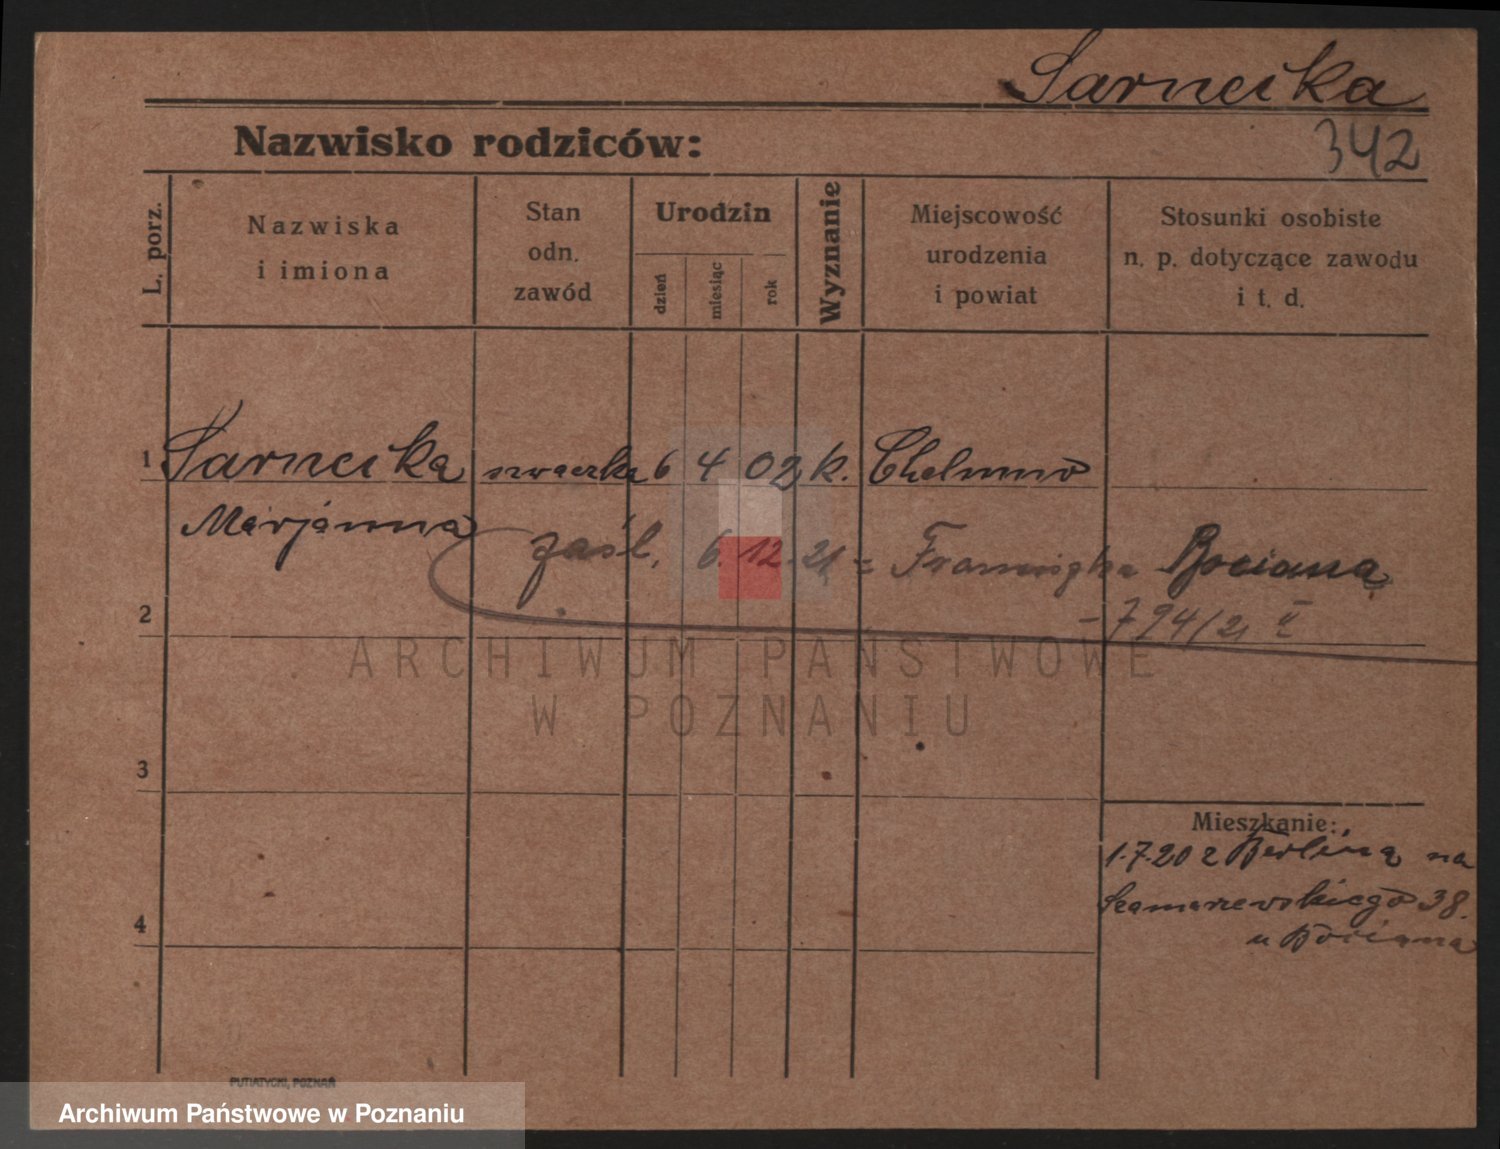 Sarnecka
342
Nazwisko rodziców:
L. porz.
Nazwiska
i imiona
Stan
odn.
zawód
Urodzin
dzień
miesiąc
rok
Wyznanie
Miejscowość
urodzenia
i powiat
Stosunki osobiste
n. p. dotyczące zawodu
i t. d.
1 Sarnecka szwaczka 6 4 02 k. Chełmno
Marjanna
zaśl. 6.12.21 = Franciszka Bociana
- 794/21 II
2
ARCHIWUM PAŃSTWOWE
W POZNANIU
3
Mieszkanie:
1.7.20 z Berlina na
Szamarzewskiego 38.
u Bociana
4
PUTIATYCKI, POZNAŃ
Archiwum Państwowe w Poznaniu